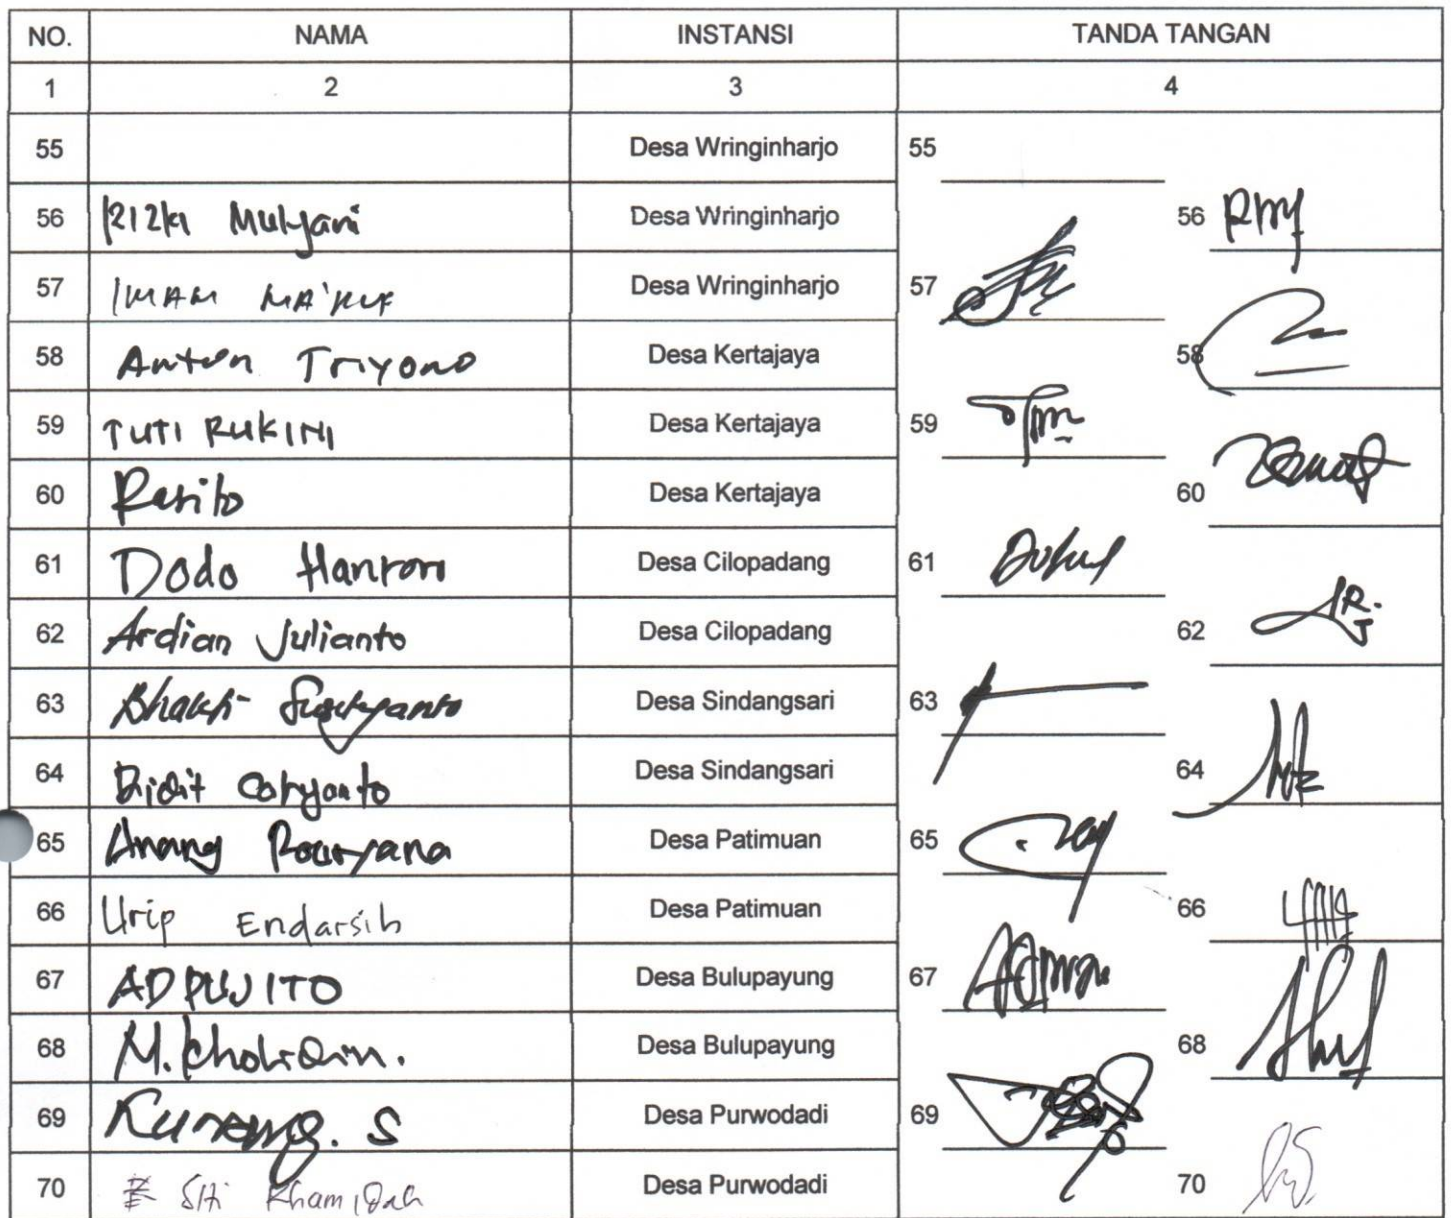 NO. NAMA INSTANSI TANDA TANGAN
1 2 3 4
55 Desa Wringinharjo 55
56 Rizki Mulyani Desa Wringinharjo 56
57 IMAM MA'RUF Desa Wringinharjo 57
58 Anton Triyono Desa Kertajaya 58
59 TUTI RUKINI Desa Kertajaya 59
60 Rasito Desa Kertajaya 60
61 Dodo Desa Cilopadang 61
62 Ardian Julianto Desa Cilopadang 62
63 Bhakti Desa Sindangsari 63
64 Didit Desa Sindangsari 64
65 Anang Desa Patimuan 65
66 Urip Endarsih Desa Patimuan 66
67 AD PUJITO Desa Bulupayung 67
68 M. Kholidin. Desa Bulupayung 68
69 S Desa Purwodadi 69
70 Siti Khamidah Desa Purwodadi 70